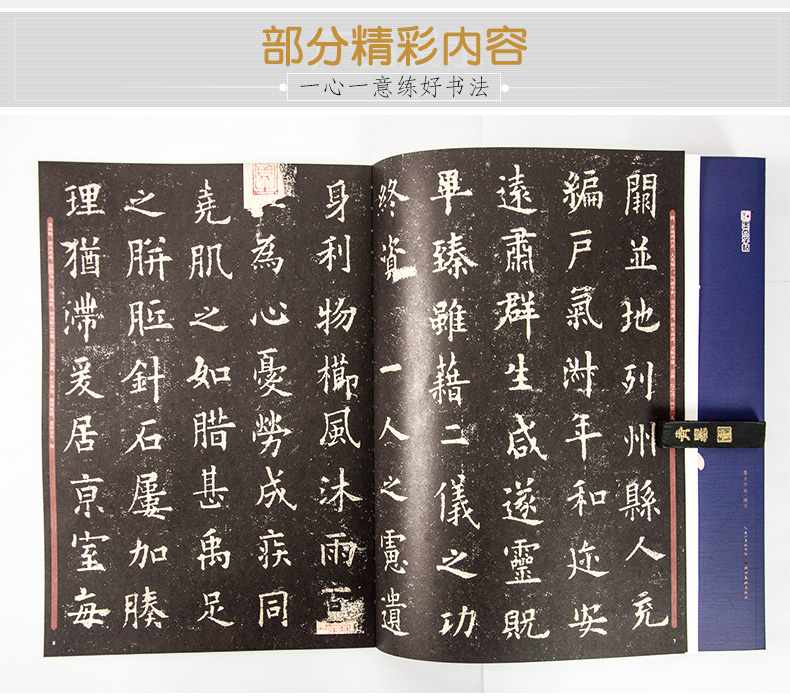 部分精彩内容
一心一意练好书法
闢並地列州縣人充
編戶氣淑年和迩安
遠肅群生咸遂靈貺
畢臻雖藉二儀之功
終資一人之慮遺
身利物櫛風沐雨百
為心憂勞成疾同
堯肌之如腊甚禹足
之胼胝針石屢加腠
理猶滯爰居京室每
墨点字帖
7